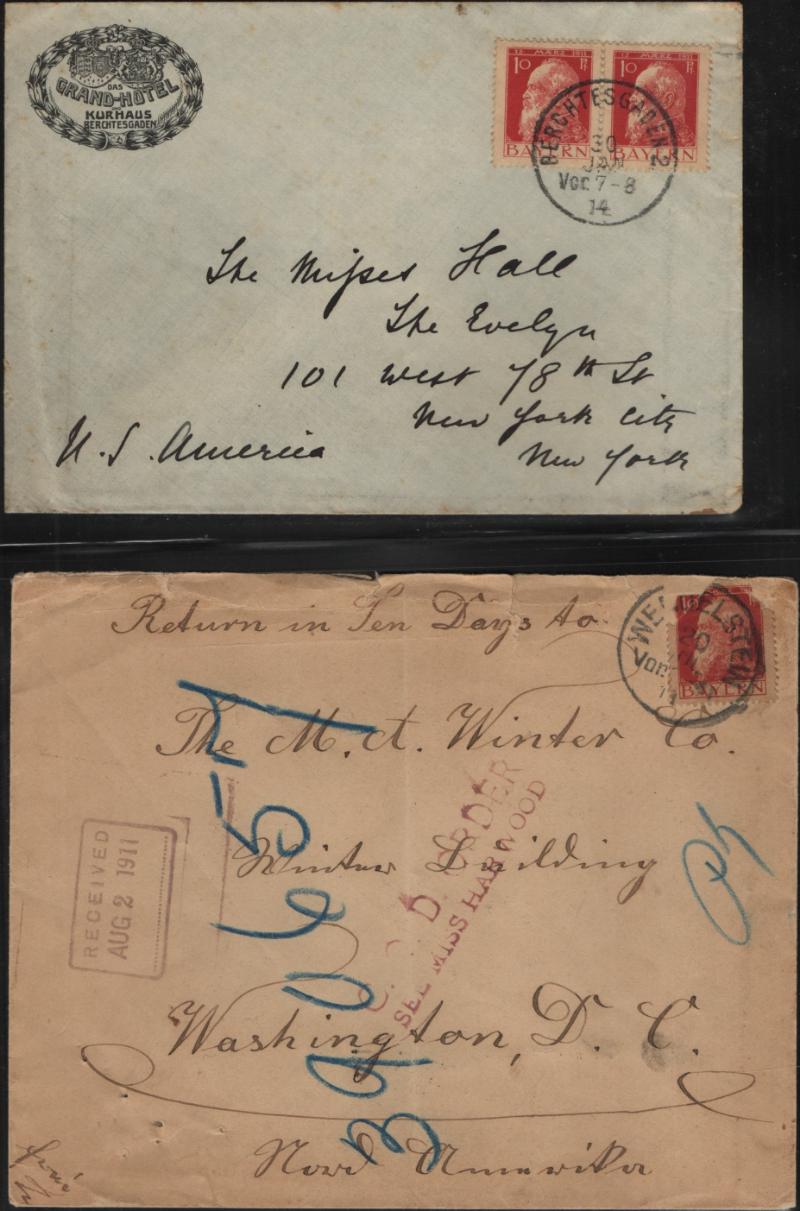 DAS
GRAND-HOTEL
KURHAUS
BERCHTESGADEN
12 MÄRZ 1911 12 MÄRZ 1911
10 Pf 10 Pf
BAYERN BAYERN
BERCHTESGADEN 2
30
JAN
Vor. 7-8
14
The Misses Hall
The Evelyn
101 West 78th St
New York City
New York
U.S. America
Return in Ten Days to
WENDELSTEIN
20
Vor.
11
BAYERN
The M. A. Winter Co.
Winter Building
Washington, D. C.
Nord Amerika
RECEIVED
AUG 2 1911
C. O. D. ORDER
SEE MISS HARWOOD
39065